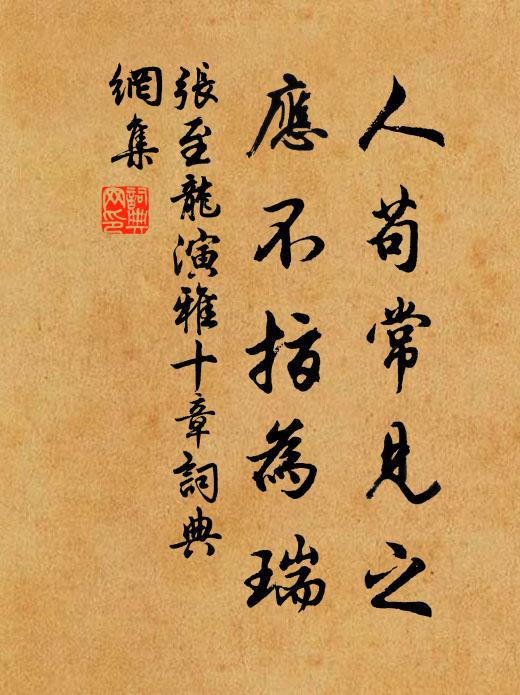 人苟常見之
應不指為瑞
張至龍演雅十章詞典
網集
詞典
網印